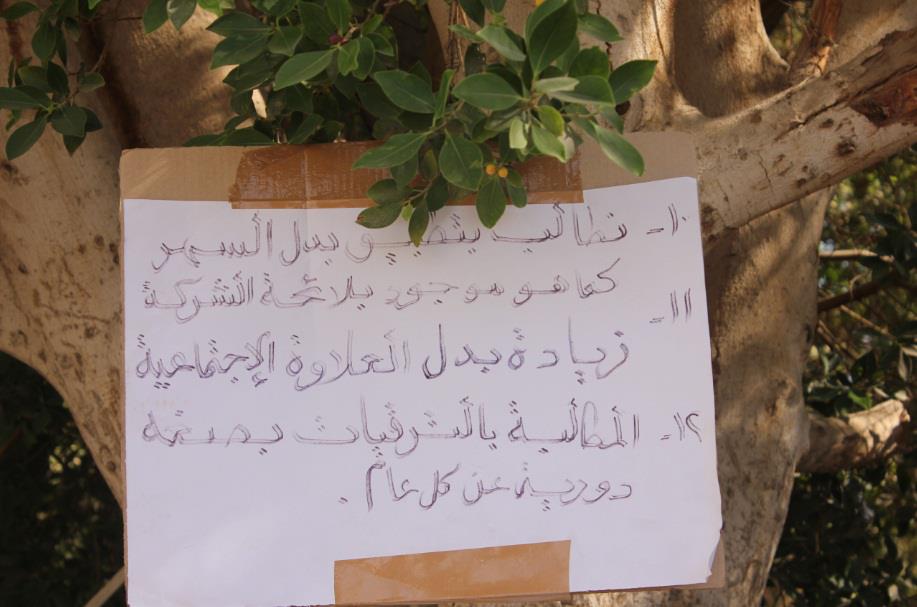 ١٠- نطالب بتطبيق بدل السهر
كما هو موجود بلائحة الشركة
١١- زيادة بدل العلاوة الإجتماعية
١٢- المطالبة بالترقيات بصفة
دورية عن كل عام .